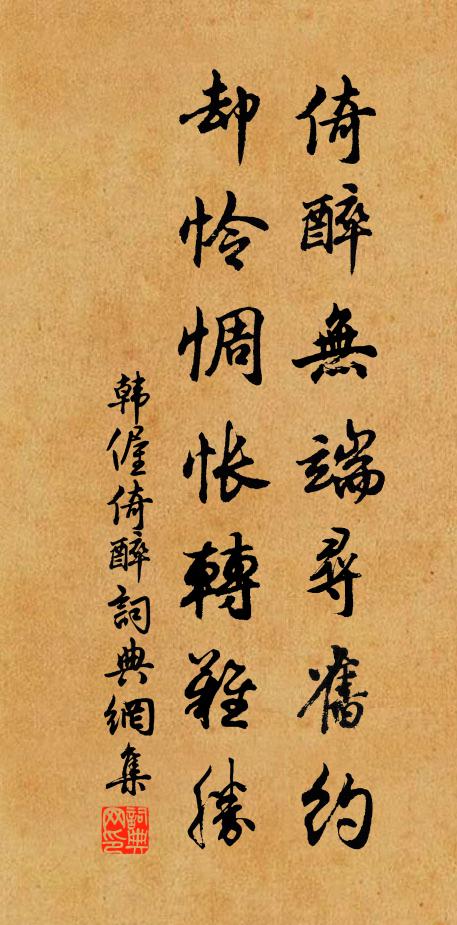 倚醉無端尋舊約
却怜惆怅轉難勝
韩偓倚醉詞典網集
詞典网印